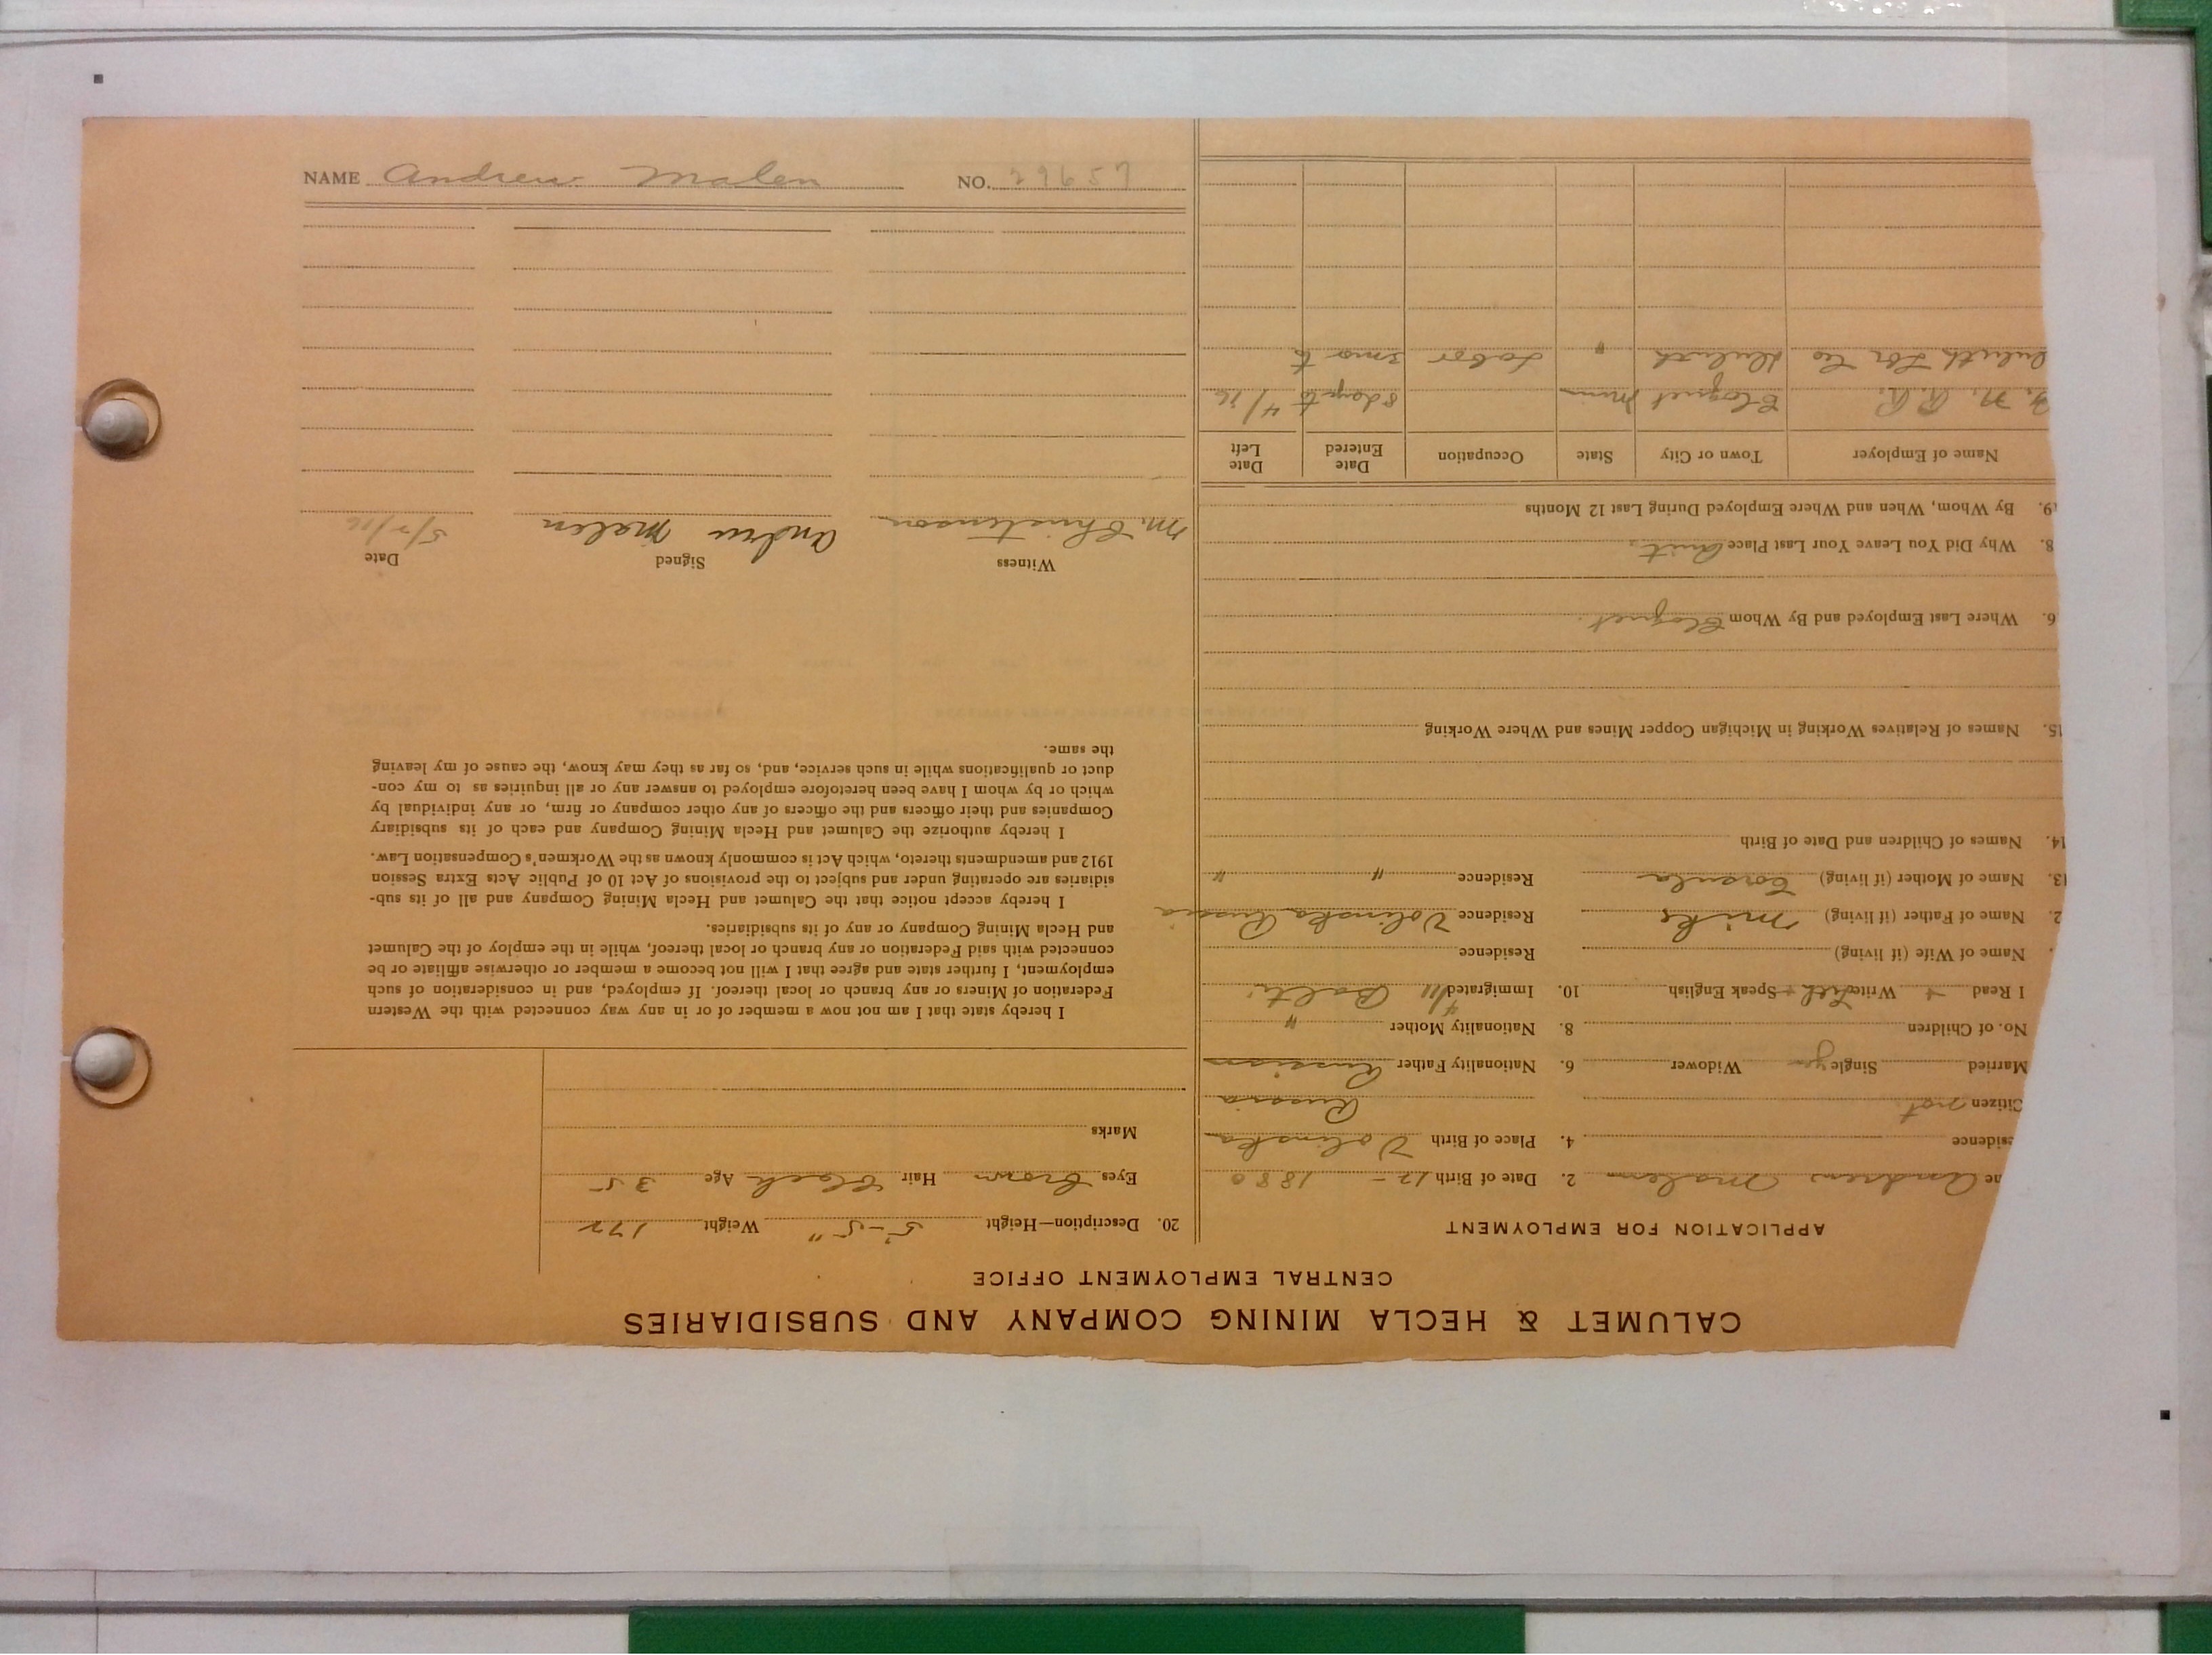 NAME Andrew Malen NO. 29657
CALUMET & HECLA MINING COMPANY AND SUBSIDIARIES
CENTRAL EMPLOYMENT OFFICE
APPLICATION FOR EMPLOYMENT
me Andrew Malen 2. Date of Birth 12 - 1880
esidence 4. Place of Birth Volinska
Citizen not Russia
Married Single yes Widower 6. Nationality Father Russian
No. of Children 8. Nationality Mother "
I Read + Write Speak English 10. Immigrated 4/11
. Name of Wife (if living) Residence
2. Name of Father (if living) Mike Residence Volinska Russia
13. Name of Mother (if living) Residence " "
14. Names of Children and Date of Birth
15. Names of Relatives Working in Michigan Copper Mines and Where Working
6. Where Last Employed and By Whom Cloquet
8. Why Did You Leave Your Last Place Quit
19. By Whom, When and Where Employed During Last 12 Months
Name of Employer Town or City State Occupation Date Entered Date Left
N. R.R. Cloquet Minn 8 days to 4/16
Duluth " Labor 3 mo to
20. Description—Height 5'-5" Weight 172
Eyes Brown Hair Black Age 35
Marks
I hereby state that I am not now a member of or in any way connected with the Western
Federation of Miners or any branch or local thereof. If employed, and in consideration of such
employment, I further state and agree that I will not become a member or otherwise affiliate or be
connected with said Federation or any branch or local thereof, while in the employ of the Calumet
and Hecla Mining Company or any of its subsidiaries.
I hereby accept notice that the Calumet and Hecla Mining Company and all of its sub-
sidiaries are operating under and subject to the provisions of Act 10 of Public Acts Extra Session
1912 and amendments thereto, which Act is commonly known as the Workmen's Compensation Law.
I hereby authorize the Calumet and Hecla Mining Company and each of its subsidiary
Companies and their officers and the officers of any other company or firm, or any individual by
which or by whom I have been heretofore employed to answer any or all inquiries as to my con-
duct or qualifications while in such service, and, so far as they may know, the cause of my leaving
the same.
Witness Signed Date
M. Christenson Andrew Malen 5/2/16